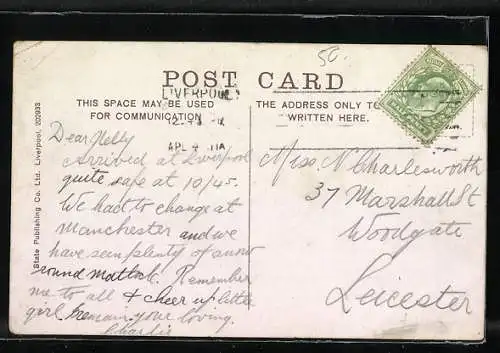 50.
POST CARD
LIVERPOOL
THIS SPACE MAY BE USED
FOR COMMUNICATION
THE ADDRESS ONLY TO
WRITTEN HERE.
State Publishing Co. Ltd. Liverpool, 202933
Dear Nelly
Arrived at Liverpool
quite safe at 10/45.
We had to change at
Manchester and we
have seen plenty of snow
round Matlock. Remember
me to all & cheer up little
girl. I remain your loving
Charlie
Miss. N. Charlesworth
37 Marshall St
Woodgate
Leicester